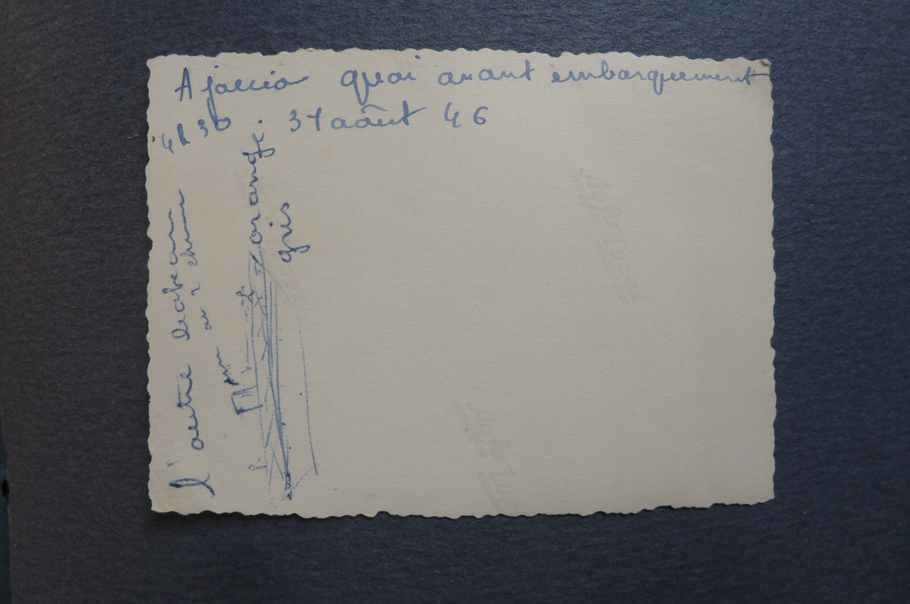 Ajaccio quai avant embarquement
4h30 31 août 46
l'autre bateau
orange
gris